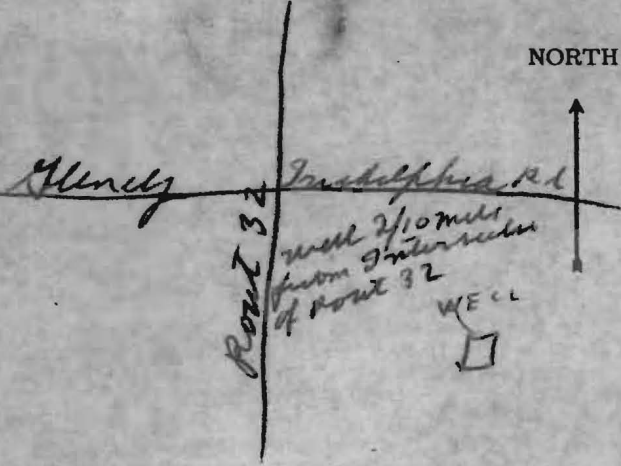 NORTH
Glenelg
Triadelphia Rd
Rout 32
well 2/10 mile
from Intersection
of Rout 32
WELL